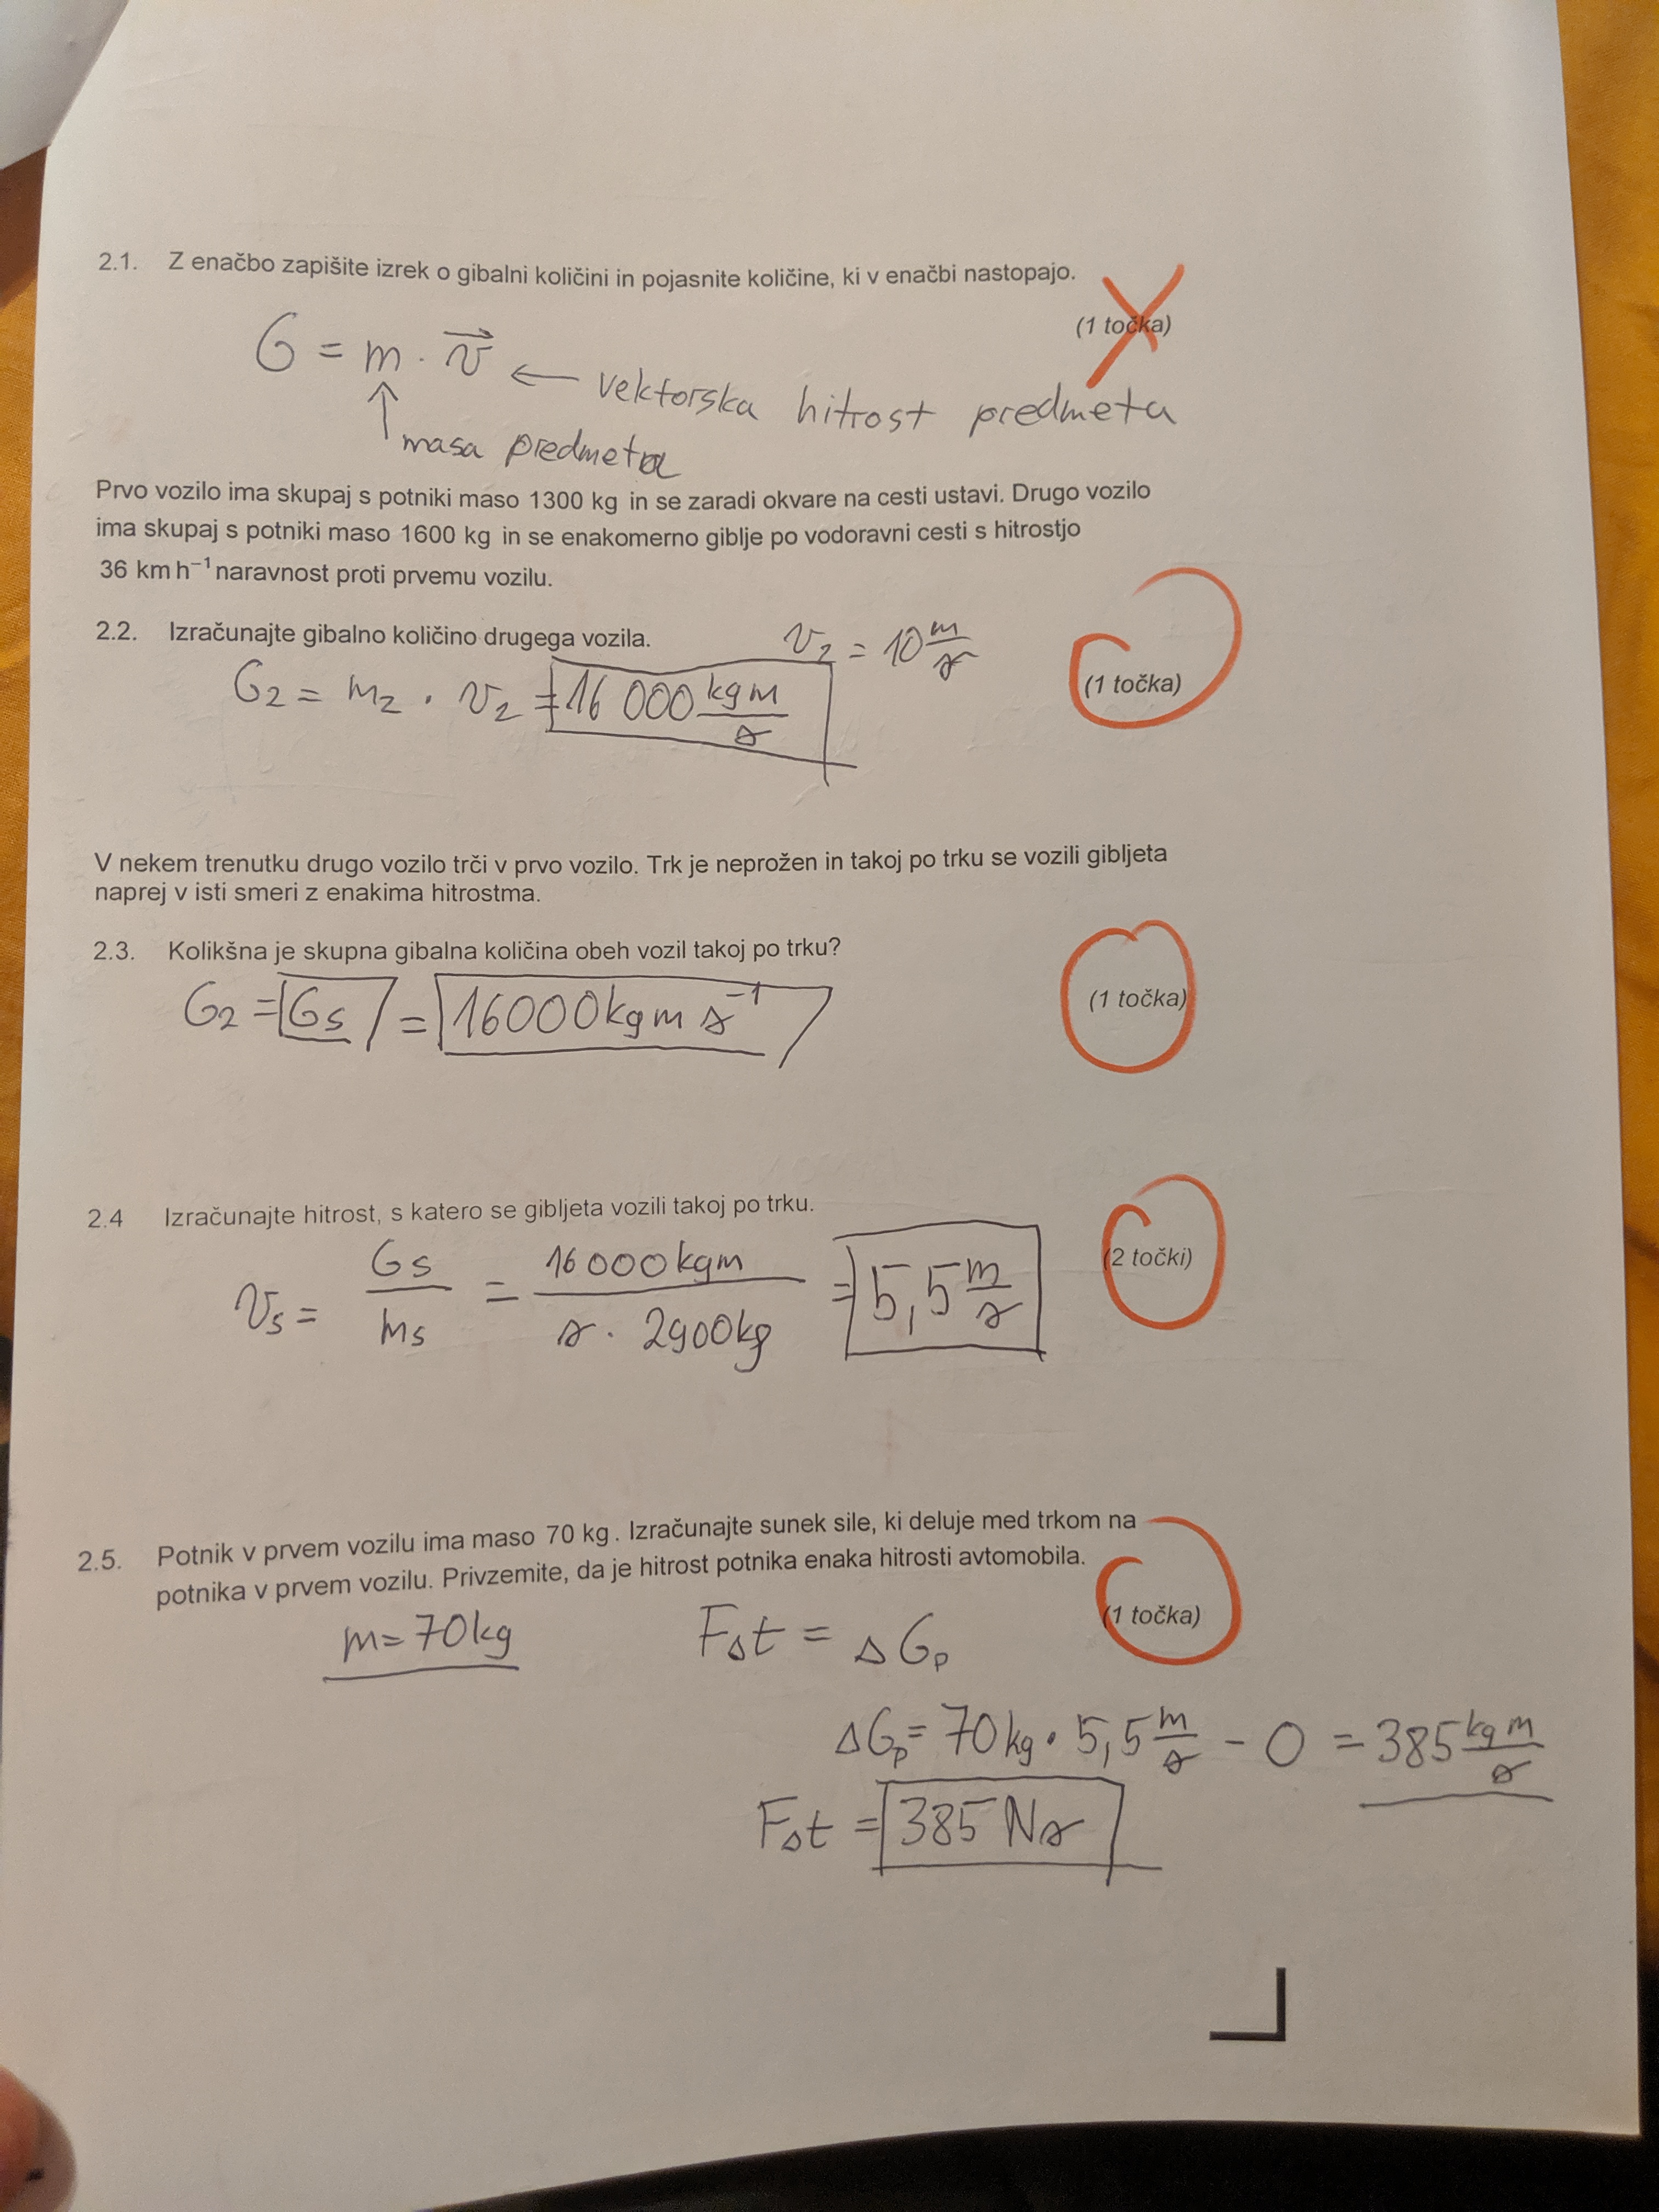 2.1. Z enačbo zapišite izrek o gibalni količini in pojasnite količine, ki v enačbi nastopajo.
(1 točka)
G = m · v⃗ ← vektorska hitrost predmeta
↑ masa predmeta
Prvo vozilo ima skupaj s potniki maso 1300 kg in se zaradi okvare na cesti ustavi. Drugo vozilo
ima skupaj s potniki maso 1600 kg in se enakomerno giblje po vodoravni cesti s hitrostjo
36 km h⁻¹ naravnost proti prvemu vozilu.
2.2. Izračunajte gibalno količino drugega vozila.
v₂ = 10 m/s
(1 točka)
G₂ = m₂ · v₂ = 16 000 kgm/s
V nekem trenutku drugo vozilo trči v prvo vozilo. Trk je neprožen in takoj po trku se vozili gibljeta
naprej v isti smeri z enakima hitrostma.
2.3. Kolikšna je skupna gibalna količina obeh vozil takoj po trku?
(1 točka)
G₂ = Gs = 16000 kgm s⁻¹
2.4 Izračunajte hitrost, s katero se gibljeta vozili takoj po trku.
(2 točki)
vs = Gs/ms = 16 000 kgm/s · 2900 kg = 5,5 m/s
2.5. Potnik v prvem vozilu ima maso 70 kg. Izračunajte sunek sile, ki deluje med trkom na
potnika v prvem vozilu. Privzemite, da je hitrost potnika enaka hitrosti avtomobila.
(1 točka)
m = 70 kg
FΔt = ΔGp
ΔGp = 70 kg · 5,5 m/s - 0 = 385 kgm/s
FΔt = 385 Ns